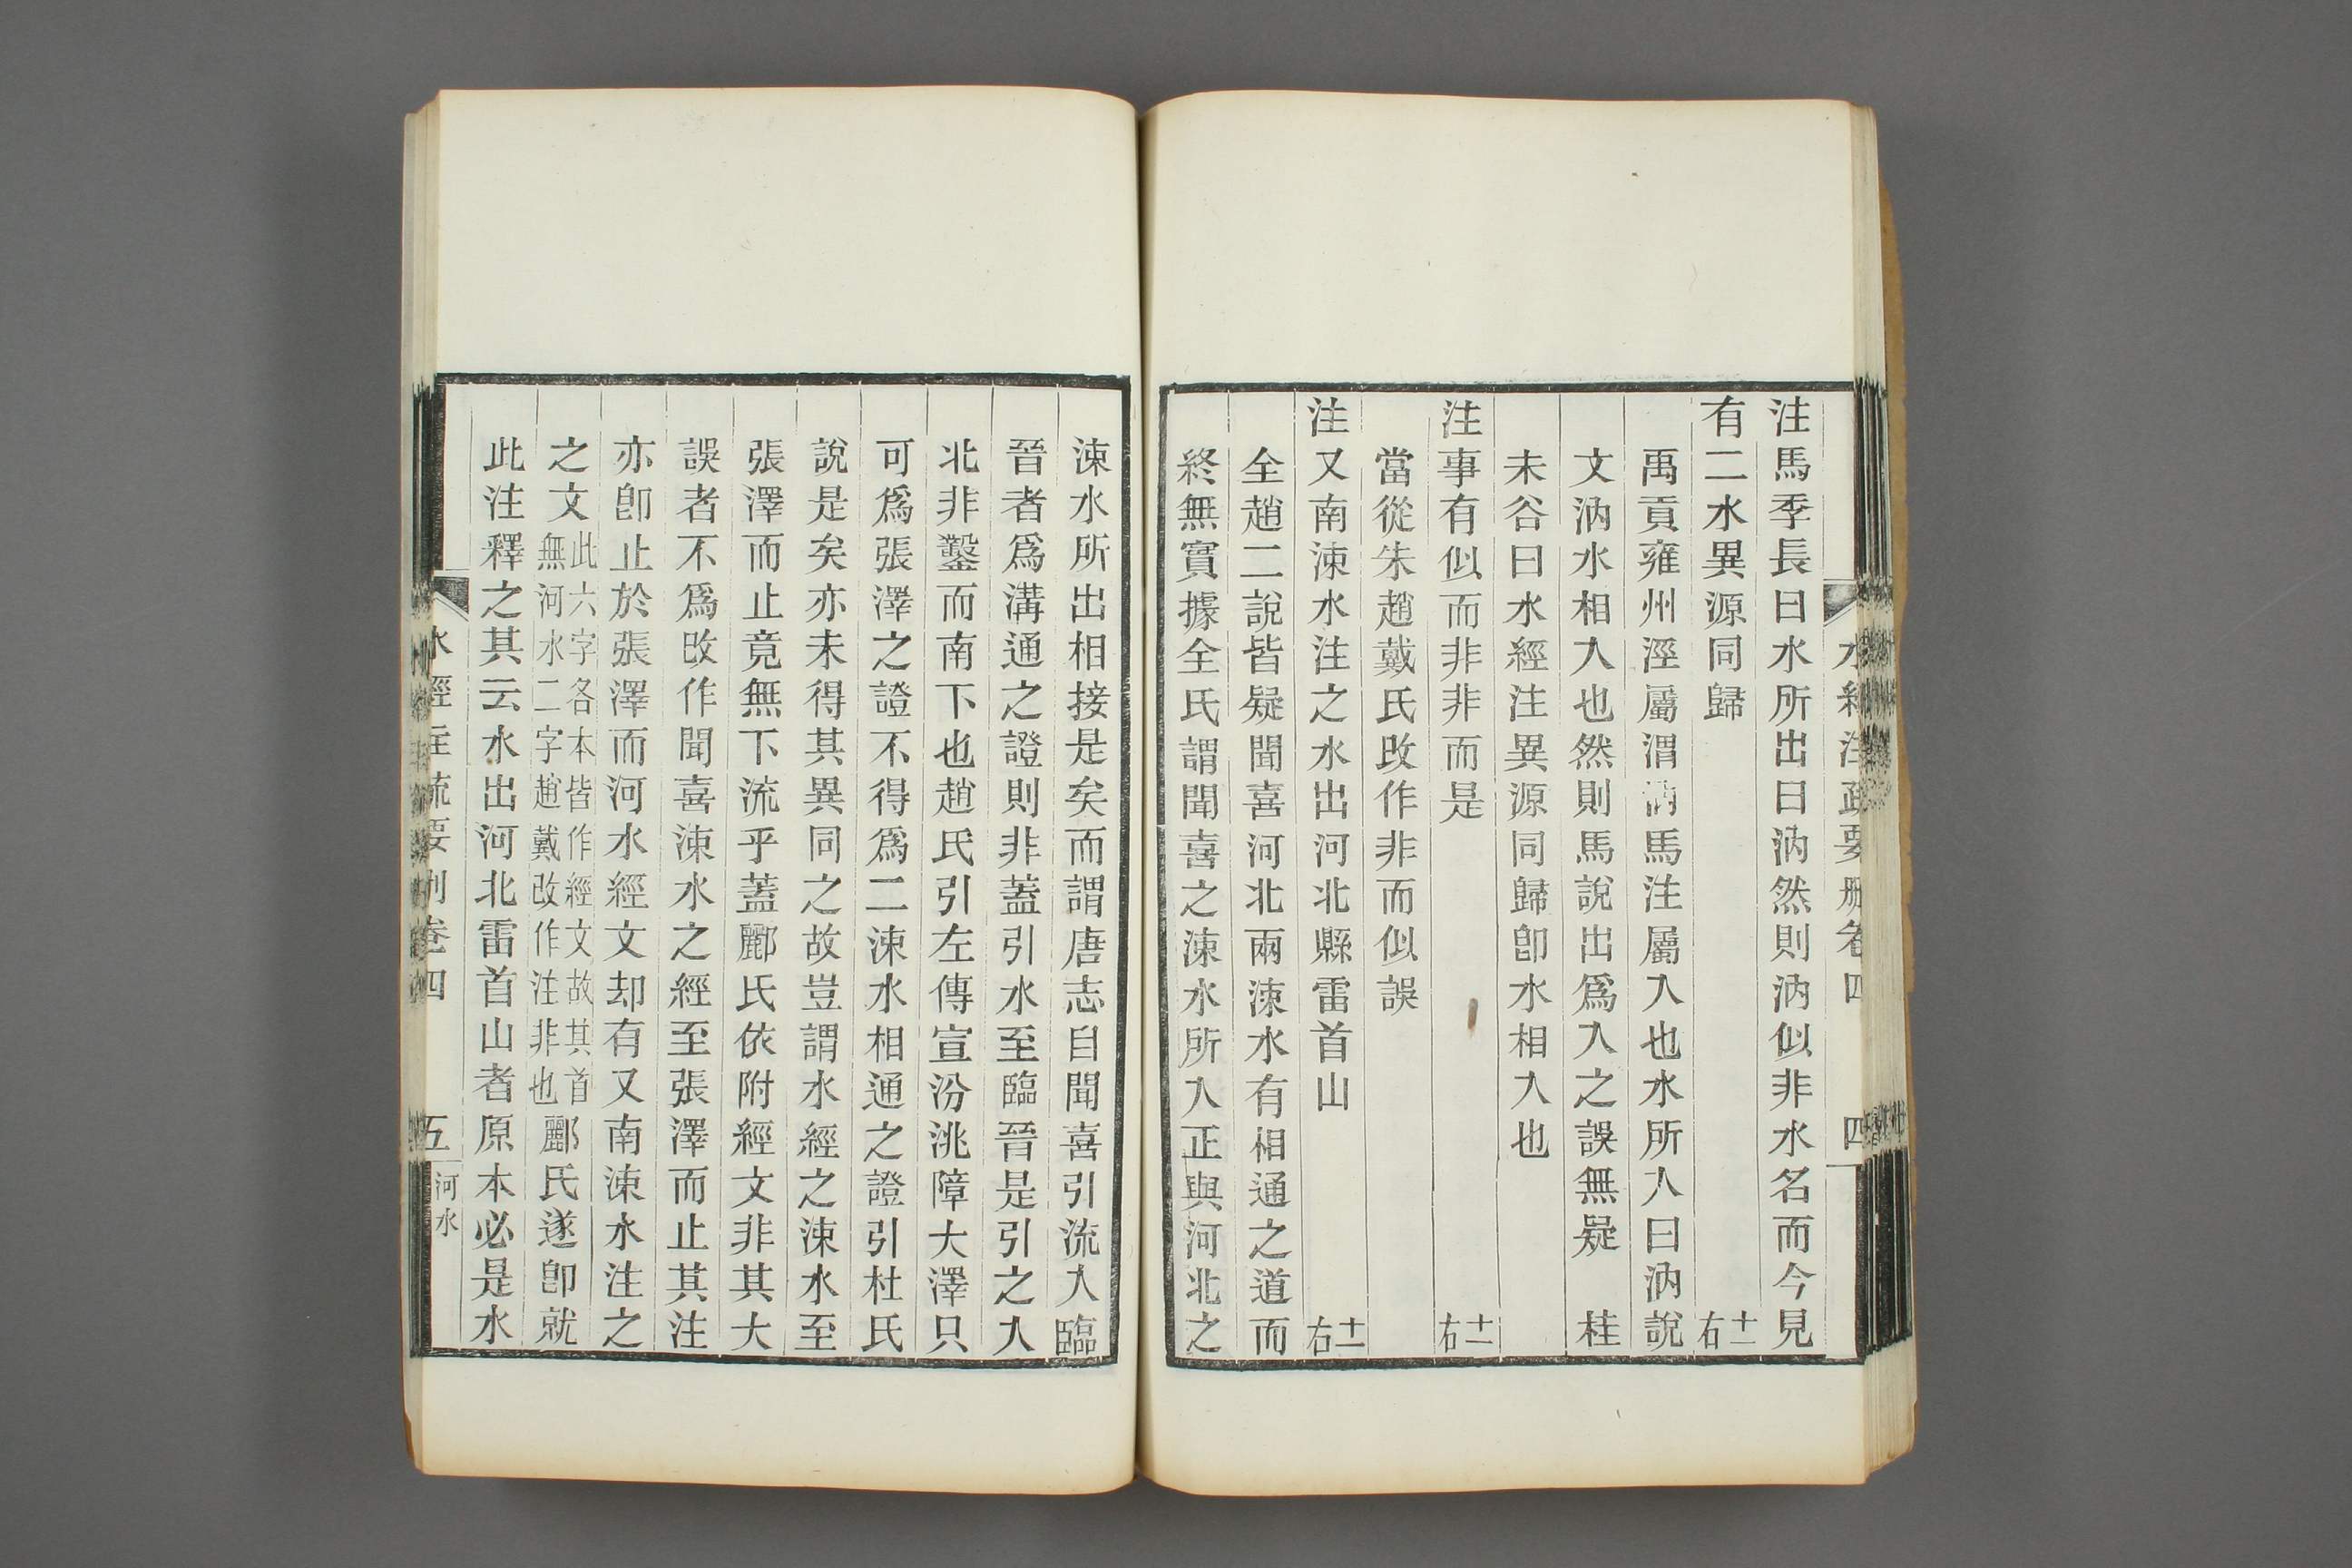 水經注疏要刪卷四 四
注馬季長曰水所出曰汭然則汭似非水名而今見
有二水異源同歸 十一右
禹貢雍州涇屬渭汭馬注屬入也水所入曰汭說
文汭水相入也然則馬說出爲入之誤無疑 桂
未谷曰水經注異源同歸卽水相入也
注事有似而非非而是 十一右
當從朱趙戴氏改作非而似誤
注又南涑水注之水出河北縣雷首山 十一右
全趙二說皆疑聞喜河北兩涑水有相通之道而
終無實據全氏謂聞喜之涑水所入正與河北之
涑水所出相接是矣而謂唐志自聞喜引流入臨
晉者爲溝通之證則非蓋引水至臨晉是引之入
北非鑿而南下也趙氏引左傳宣汾洮障大澤只
可爲張澤之證不得爲二涑水相通之證引杜氏
說是矣亦未得其異同之故豈謂水經之涑水至
張澤而止竟無下流乎蓋酈氏依附經文非其大
誤者不爲改作聞喜涑水之經至張澤而止其注
亦卽止於張澤而河水經文却有又南涑水注之
之文此六字各本皆作經文故其首無河水二字趙戴改作注非也酈氏遂卽就
此注釋之其云水出河北雷首山者原本必是水
水經注疏要刪卷四 五 河水